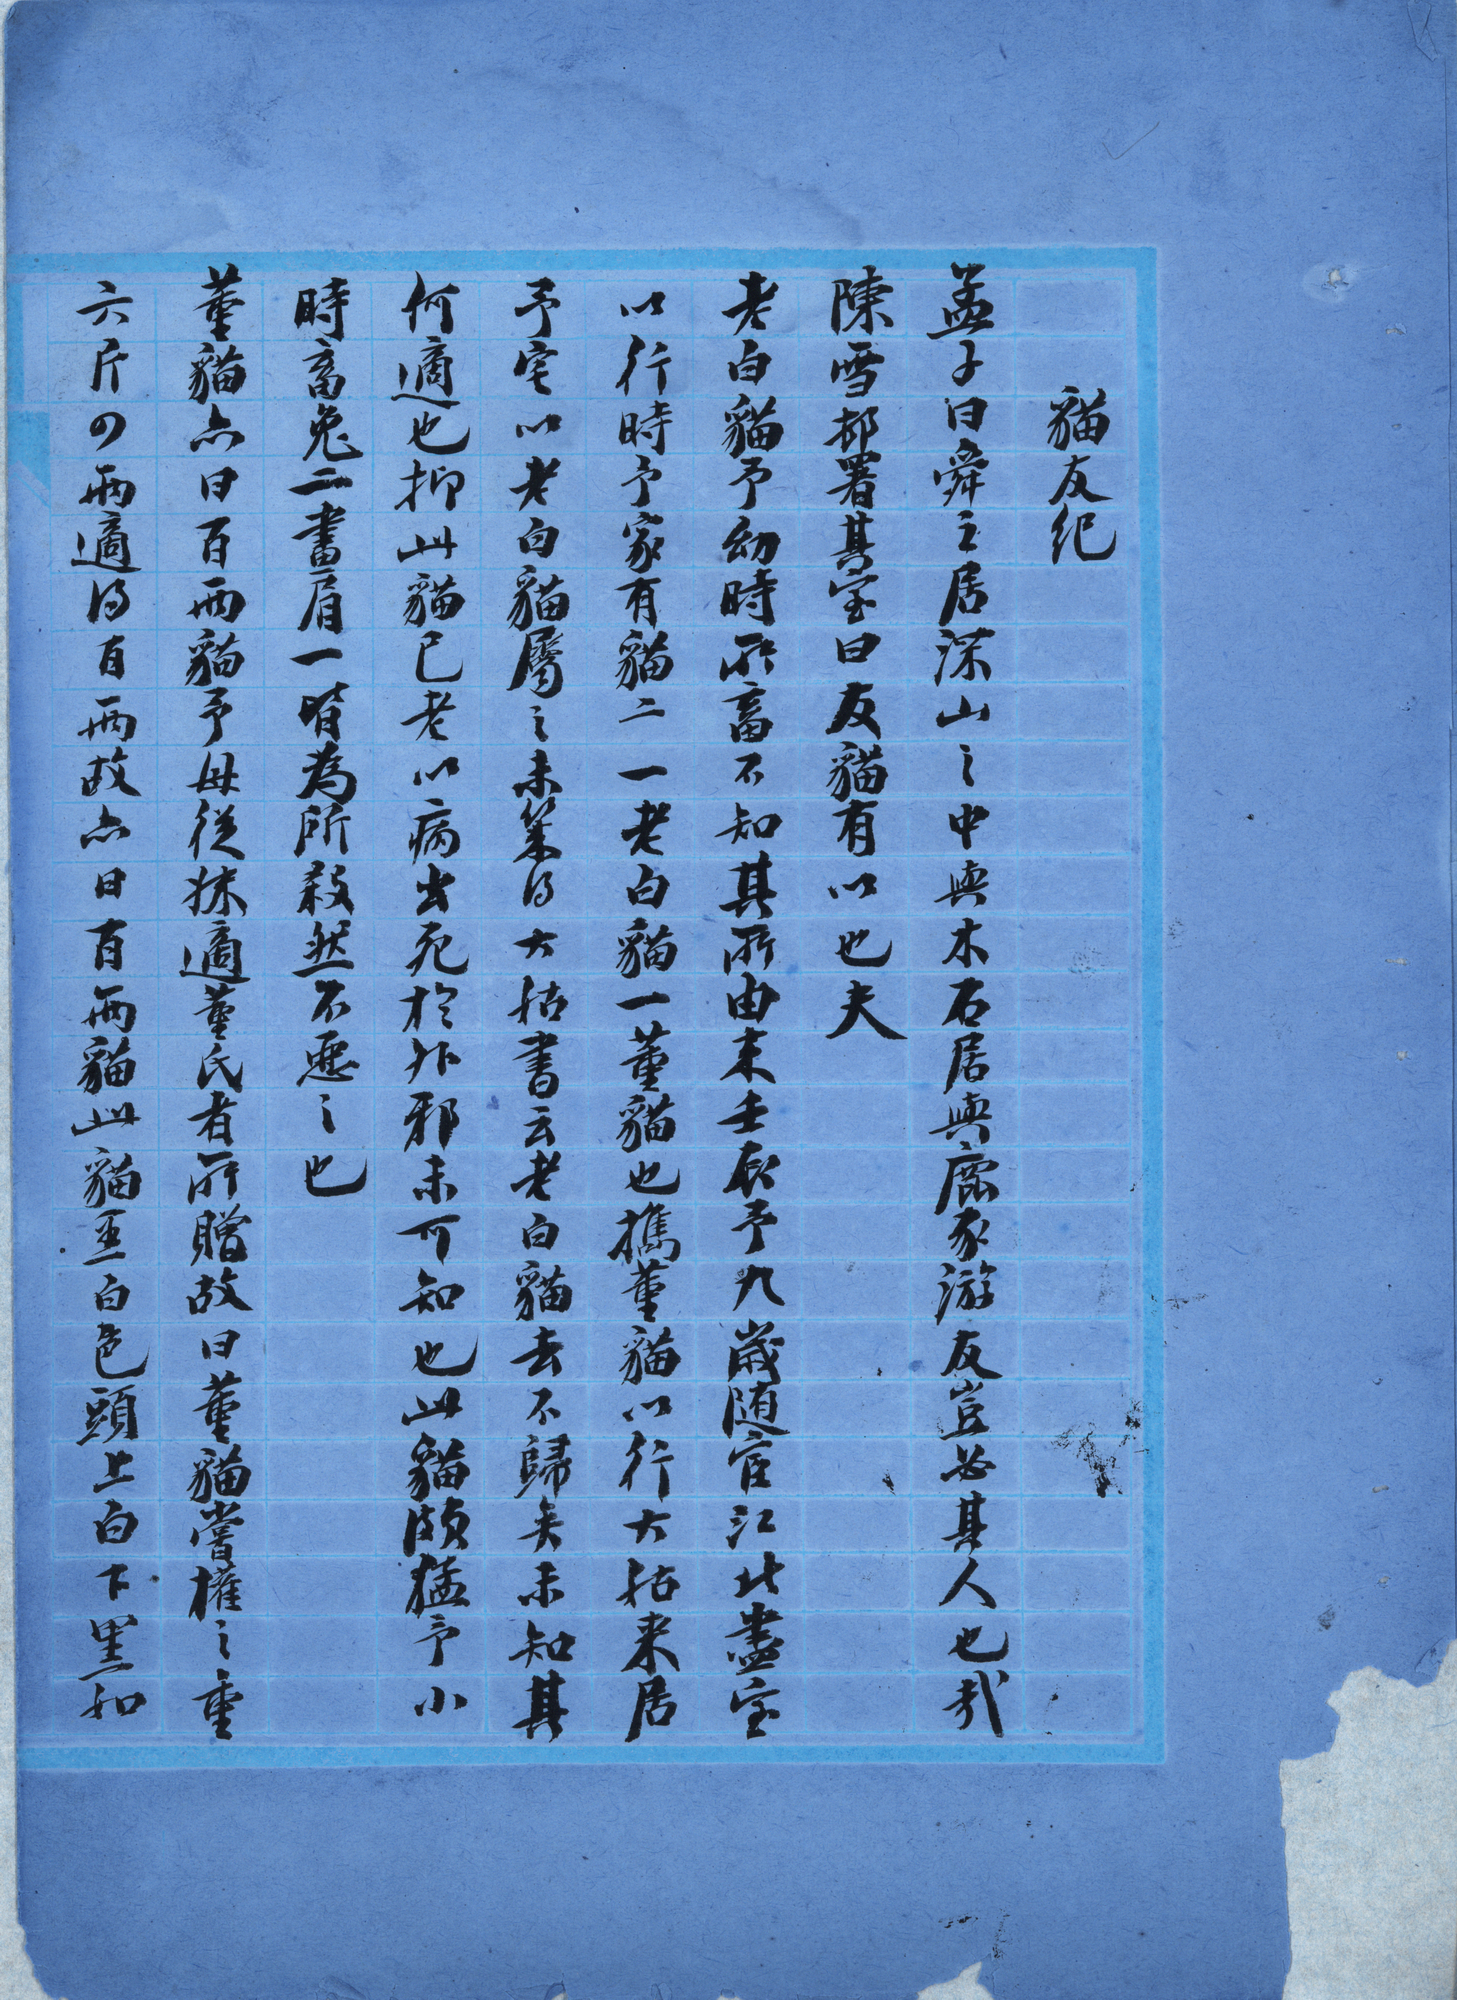 貓友紀
孟子曰舜之居深山之中與木石居與鹿豕游友豈必其人也哉
陳雪邨署其室曰友貓有以也夫
老白貓予幼時所畜不知其所由來壬辰予九歲随宦江北盡室
以行時予家有貓二一老白貓一董貓也攜董貓以行大姑来居
予宅以老白貓屬之未幾得大姑書云老白貓去不歸矣未知其
何適也抑此貓已老以病出死於外邪未可知也此貓頗猛予小
時畜兔二畫眉一皆為所殺然不惡之也
董貓亦曰百兩貓予母從妹適董氏者所贈故曰董貓嘗權之重
六斤四兩適得百兩故亦曰百兩貓此貓純白色頭上白下黑如